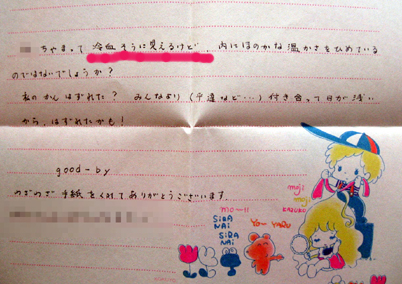 ちゃまって 冷血そうに見えるけど、内にほのかな温かさをひめている
のではないでしょうか？
私のかんはずれた？ みんなより（平達など…）付き合って日が浅い
から、はずれたかも！
good-by
のぎのぎ手紙をくれてありがとうございます
moji
moji
KAZUKO
mo~!!
SiRA
NAi
SiRA
NAi
YO~ YARU